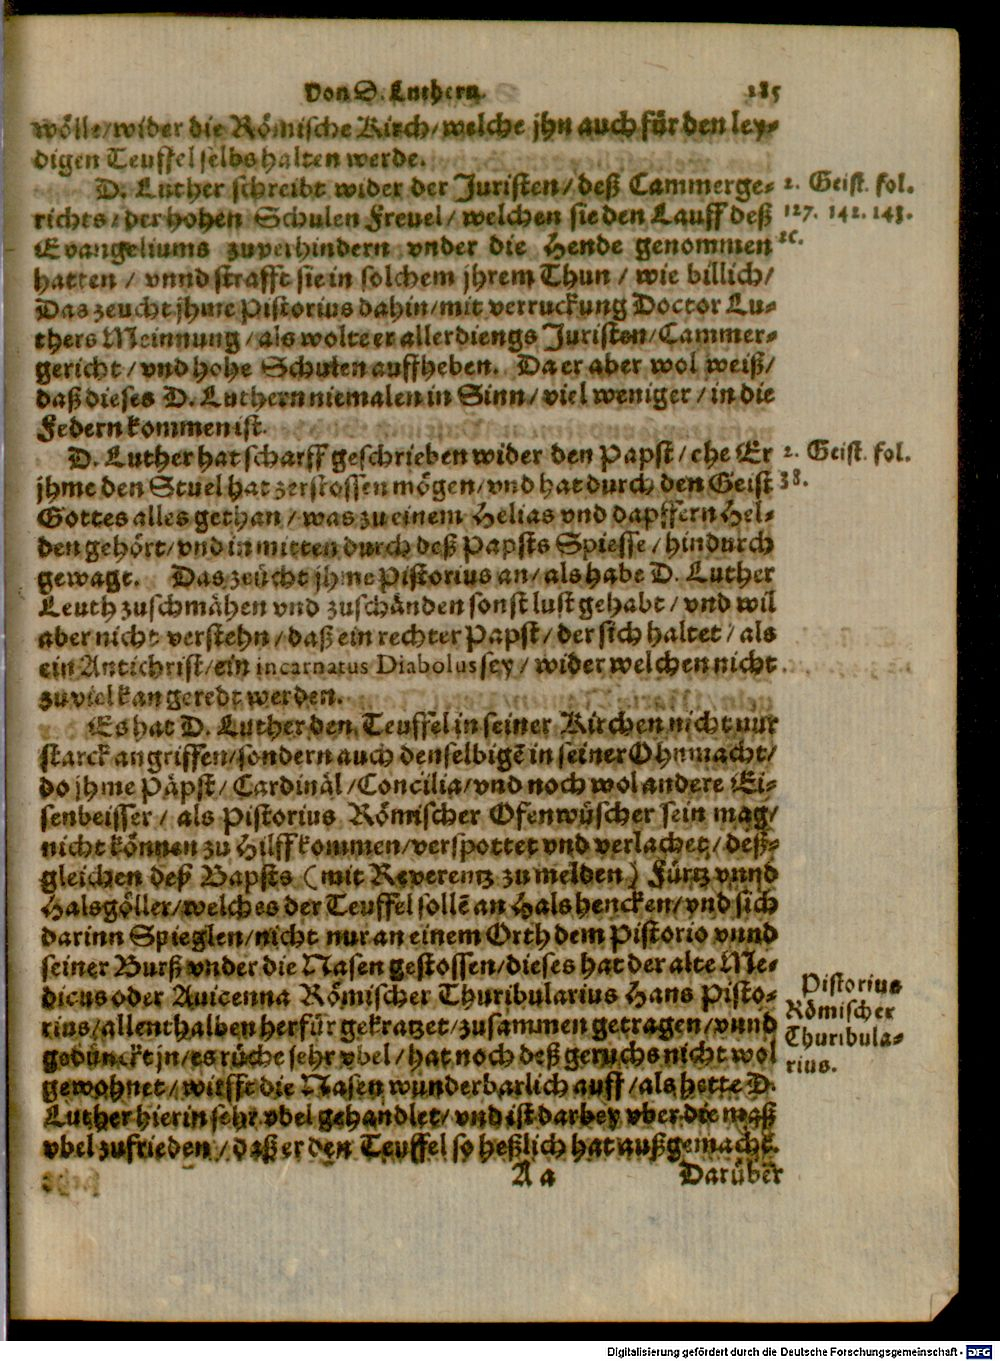 Von D. Luthern. 185
wölle/wider die Römische Kirch/welche jhn auch für den ley-
digen Teuffel selbs halten werde.
D. Luther schreibt wider der Juristen/deß Cammerge-
richts/der hohen Schulen Freuel/welchen sie den Lauff deß
Euangeliums zuverhindern vnder die Hende genommen
hatten/vnnd strafft sie in solchem jhrem Thun/wie billich/
Das zeucht jhme Pistorius dahin/mit verruckung Doctor Lu-
thers Meinnung/als wolte er allerdiengs Juristen/Cammer-
gericht/vnd hohe Schulen auffheben. Da er aber wol weiß/
daß dieses D. Luthern niemalen in Sinn/viel weniger/in die
Federn kommen ist.
2. Geist. fol.
127. 142. 143.
ꝛc.
D. Luther hat scharff geschrieben wider den Papst/ehe Er
jhme den Stuel hat zerstossen mögen/vnd hat durch den Geist
Gottes alles gethan/was zu einem Helias vnd dapffern Hel-
den gehört/vnd in mitten durch deß Papsts Spiesse/hindurch
gewagt. Das zeücht jhme Pistorius an/als habe D. Luther
Leuth zuschmähen vnd zuschänden sonst lust gehabt/vnd wil
aber nicht verstehn/daß ein rechter Papst/der sich haltet/als
ein Antichrist/ein incarnatus Diabolus sey/wider welchen nicht
zu viel kan geredt werden.
2. Geist. fol.
38.
Es hat D. Luther den Teuffel in seiner Kirchen nicht nur
starck angriffen/sondern auch denselbigẽ in seiner Ohnmacht/
do jhme Päpst/Cardinäl/Concilia/vnd noch wol andere Ei-
senbeisser/als Pistorius Römischer Ofenwüscher sein mag/
nicht können zu Hilff kommen/verspottet vnd verlachet/deß-
gleichen deß Bapsts (mit Reverentz zu melden) Fürtz vnnd
Halsgöller/welches der Teuffel sollẽ an Hals hencken/vnd sich
darinn Spieglen/nicht nur an einem Orth dem Pistorio vnnd
seiner Burß vnder die Nasen gestossen/dieses hat der alte Me-
dicus oder Auicenna Römischer Thuribularius Hans Pisto-
rius/allenthalben herfür gekratzet/zusammen getragen/vnnd
gedünckt jn/es rüche sehr vbel/hat noch deß geruchs nicht wol
gewohnet/wirfft die Nasen wunderbarlich auff/als hette D.
Luther hierin sehr vbel gehandlet/vnd ist darbey vber die maß
vbel zufrieden/daß er den Teuffel so heßlich hat außgemacht.
Pistorius
Römischer
Thuribula-
rius.
A a Darüber
Digitalisierung gefördert durch die Deutsche Forschungsgemeinschaft - DFG